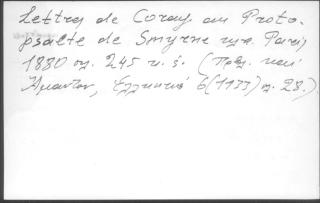 Lettres de Coray au Proto-
psalte de Smyrne Paris,
1880 σ. 245 κ. ἑ. (Πρβ. καὶ
Ἀμάντου, Ἑλληνικά 6 (1933) σ. 28.)